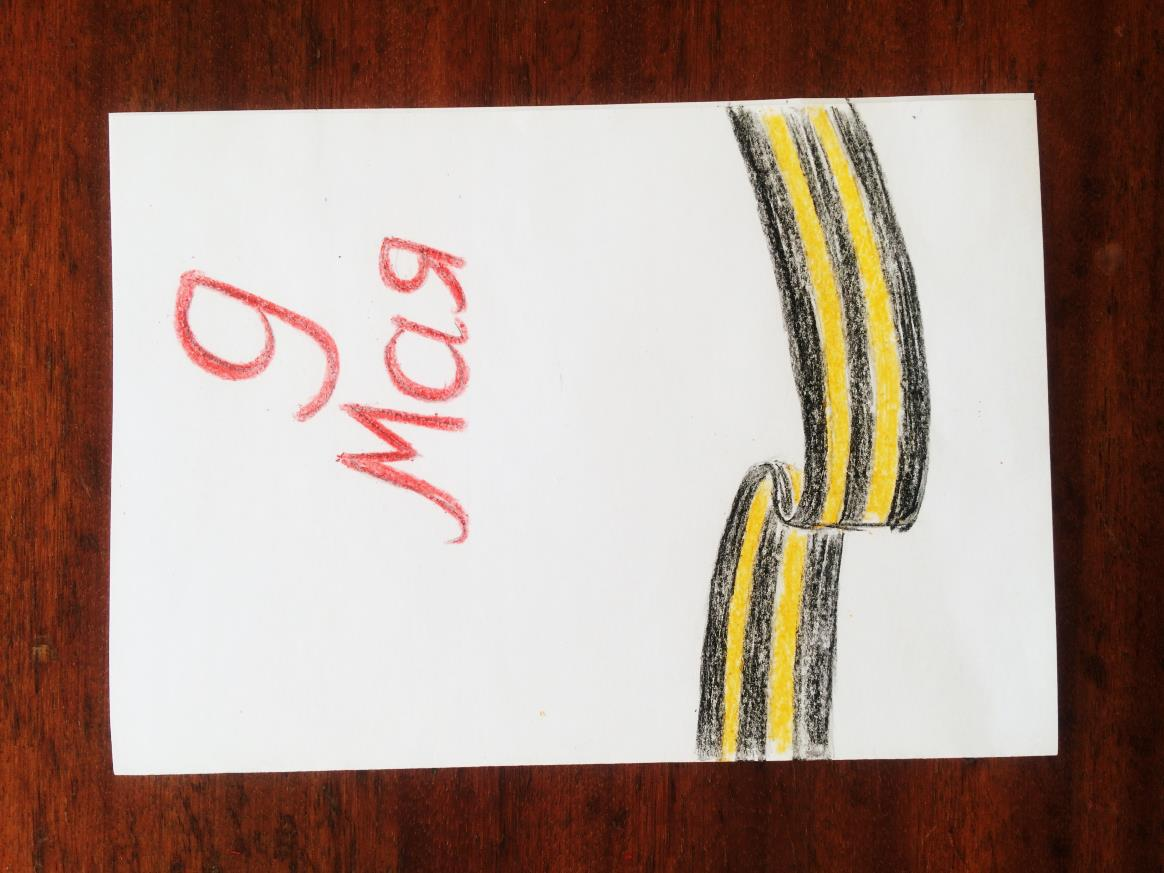 9
Мая